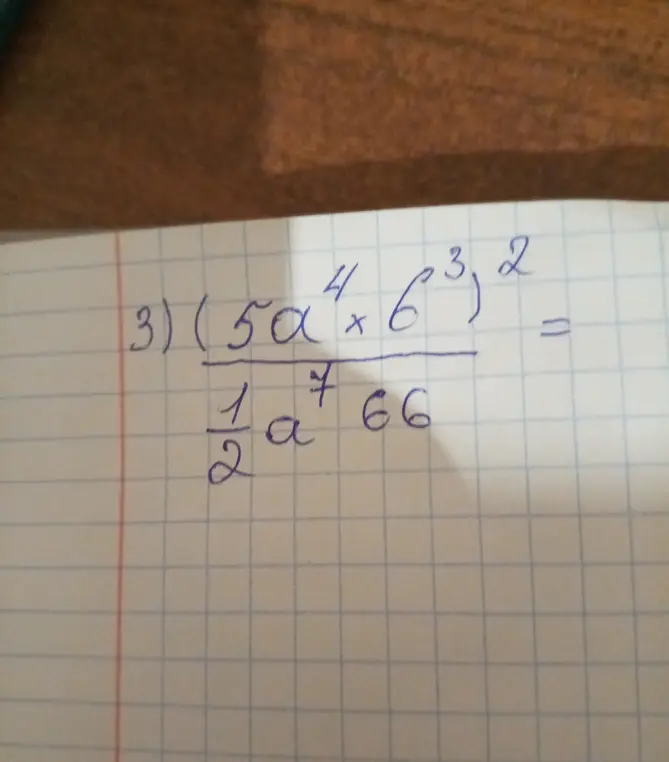 3) (5a⁴ × 6³)² =
1/2 a⁷ 66